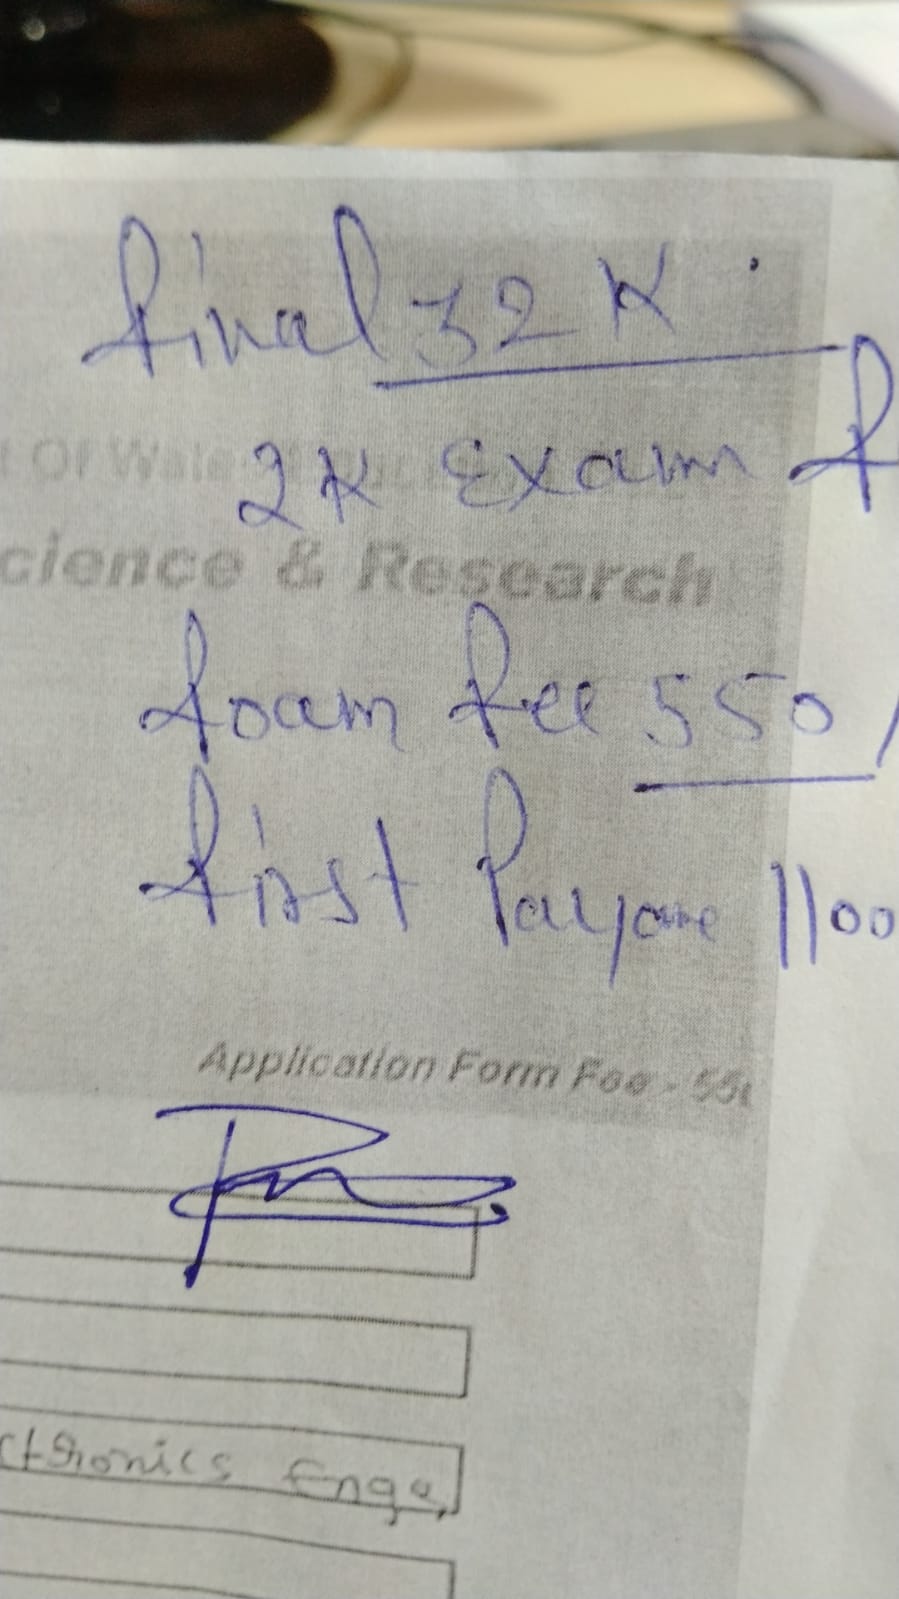 final 32K
2K Exam f
t Of
cience & Research
foam fee 550/
first Payame 1100
Application Form Fee - 55
ctronics Engg.